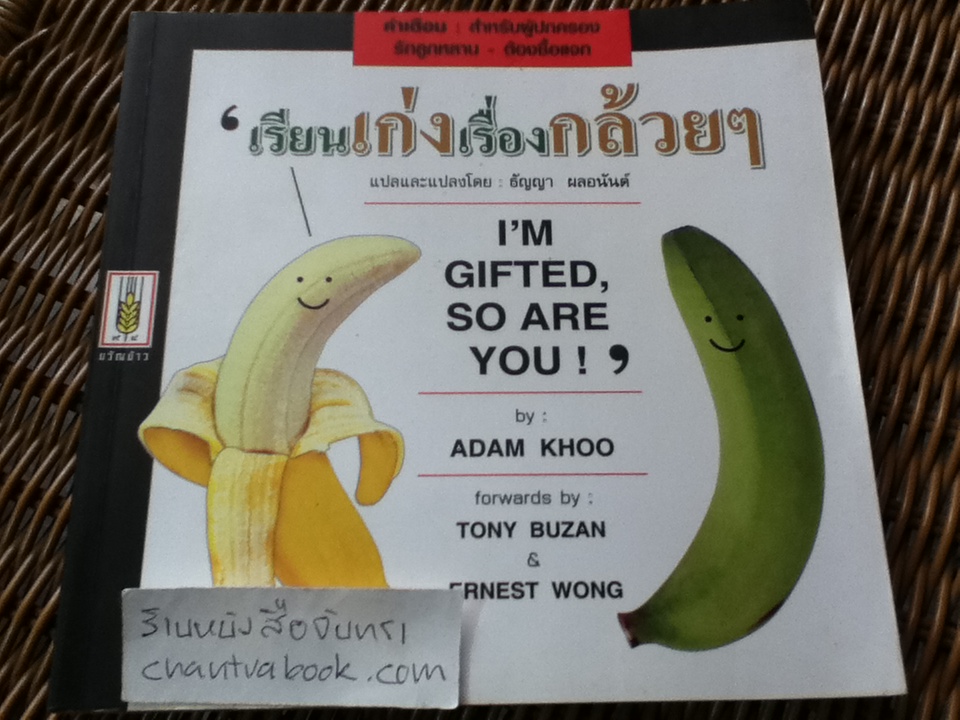 คำเตือน : สำหรับผู้ปกครอง
รักลูกหลาน - ต้องซื้อแจก
‘เรียนเก่งเรื่องกล้วยๆ
แปลและแปลงโดย : ธัญญา ผลอนันต์
I'M
GIFTED,
SO ARE
YOU ! ’
by :
ADAM KHOO
forwards by :
TONY BUZAN
&
ERNEST WONG
ขวัญข้าว
ร้านหนังสือจันทรา
chantrabook.com